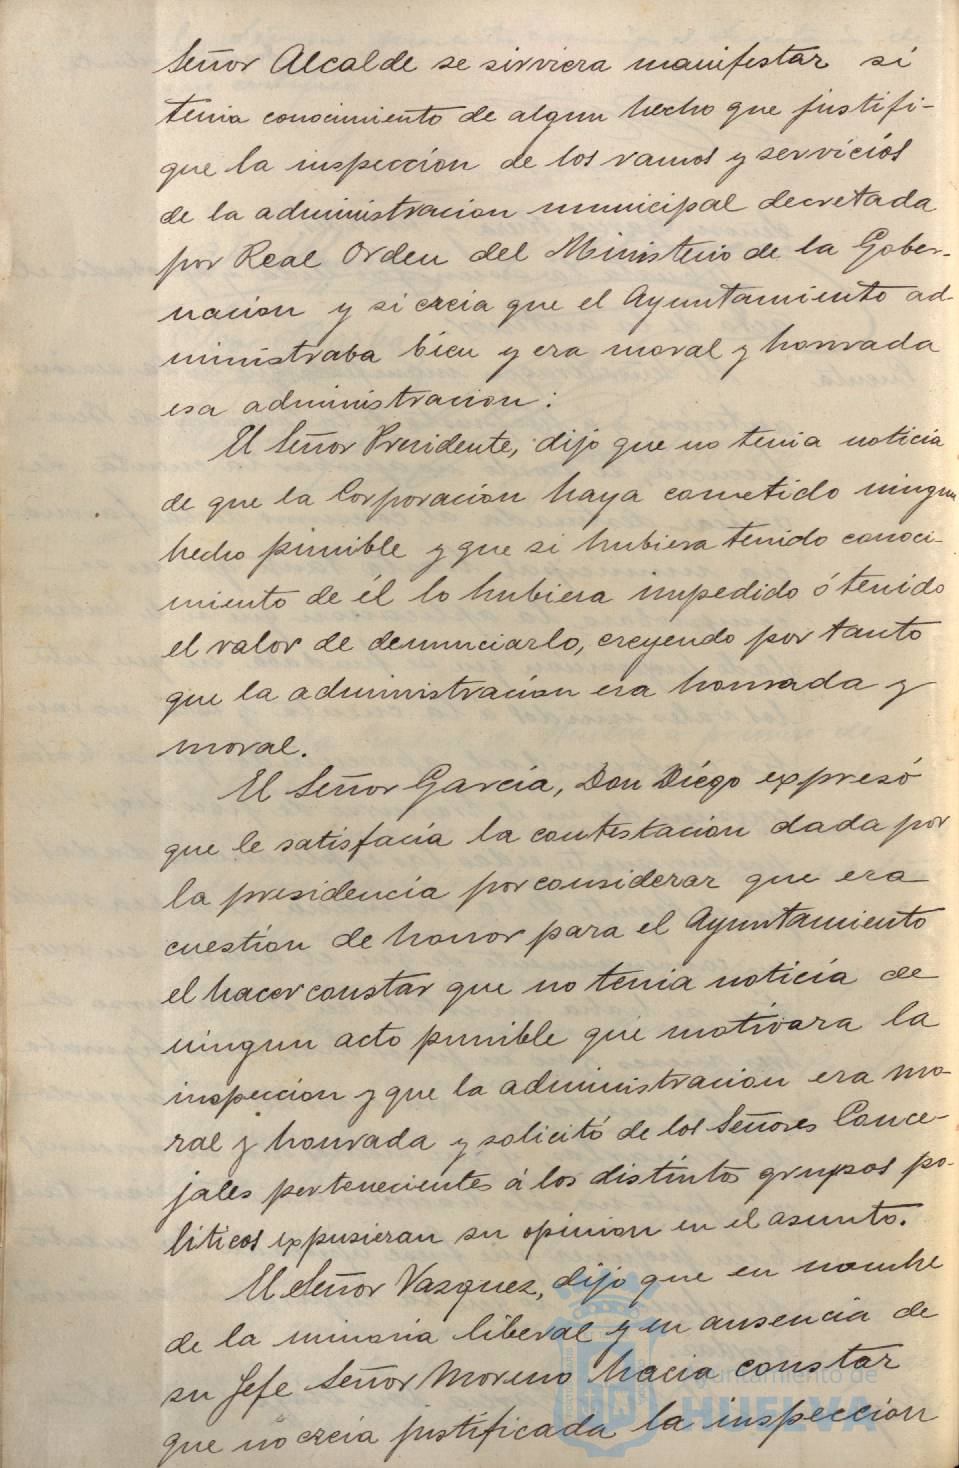 Señor Alcalde se sirviera manifestar si
tenia conocimiento de algun hecho que justifi-
que la inspección de los ramos y servicios
de la administracion municipal decretada
por Real Orden del Ministerio de la Gober-
nacion y si creia que el Ayuntamiento ad-
ministraba bien y era moral y honrada
esa administracion:
El Señor Presidente, dijo que no tenia noticia
de que la Corporacion haya cometido ningun
hecho punible y que si hubiera tenido conoci-
miento de él lo hubiera impedido ó tenido
el valor de denunciarlo, creyendo por tanto
que la administracion era honrada y
moral.
El Señor García, Don Diégo expresó
que le satisfacia la contestacion dada por
la presidencia por considerar que era
cuestion de honor para el Ayuntamiento
el hacer constar que no tenia noticia de
ningun acto punible que motivara la
inspeccion y que la administracion era mo-
ral y honrada y solicitó de los Señores Conce-
jales pertenecientes á los distintos grupos po-
liticos expusieran su opinion en el asunto.
El Señor Vazquez, dijo que en nombre
de la minoria liberal y en ausencia de
su Jefe Señor Moreno hacia constar
que no creia justificada la inspeccion
Ayuntamiento de
HUELVA